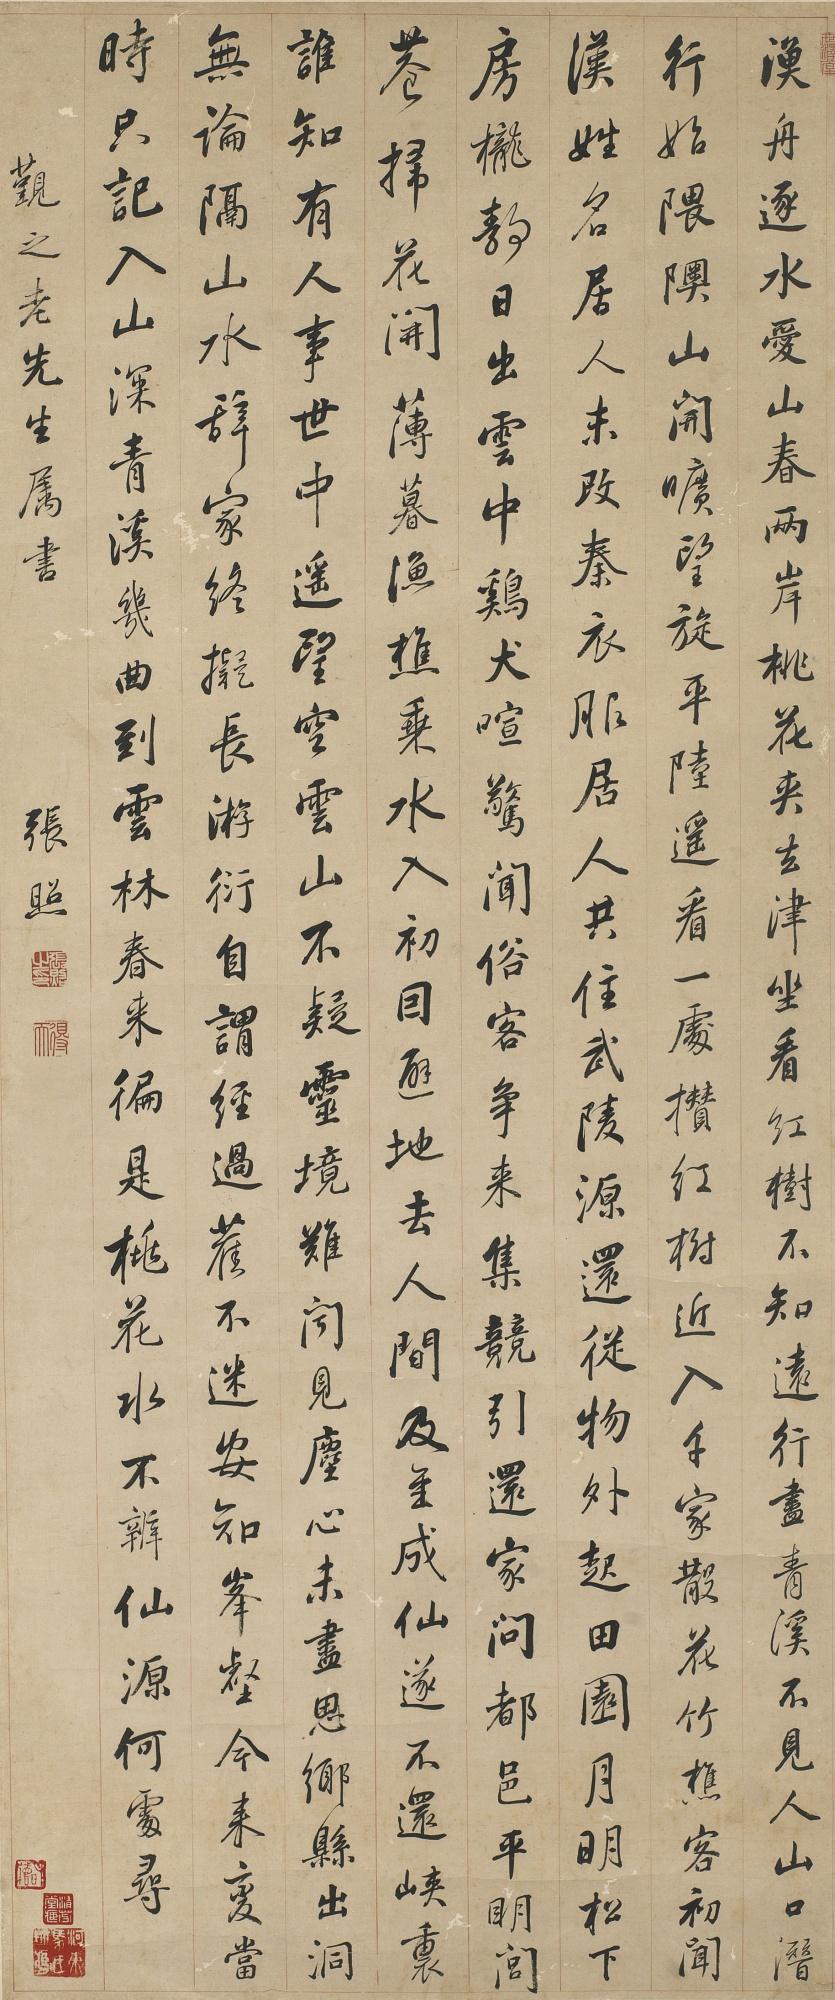 漁舟逐水愛山春兩岸桃花夾去津坐看紅樹不知遠行盡青溪不見人山口潛
行始隈隩山開曠望旋平陸遥看一處攢紅樹近入千家散花竹樵客初聞
漢姓名居人未改秦衣服居人共住武陵源還從物外起田園月明松下
房櫳静日出雲中鷄犬喧驚聞俗客争来集競引還家問都邑平明閭
巷掃花開薄暮漁樵乗水入初因避地去人間及至成仙遂不還峽裏
誰知有人事世中遥望空雲山不疑靈境難聞見塵心未盡思鄉縣出洞
無論隔山水辞家終擬長游衍自謂經過舊不迷安知峯壑今来變當
時只記入山深青溪幾曲到雲林春来徧是桃花水不辨仙源何處尋
觐之老先生属書
張照
張照之印
得天